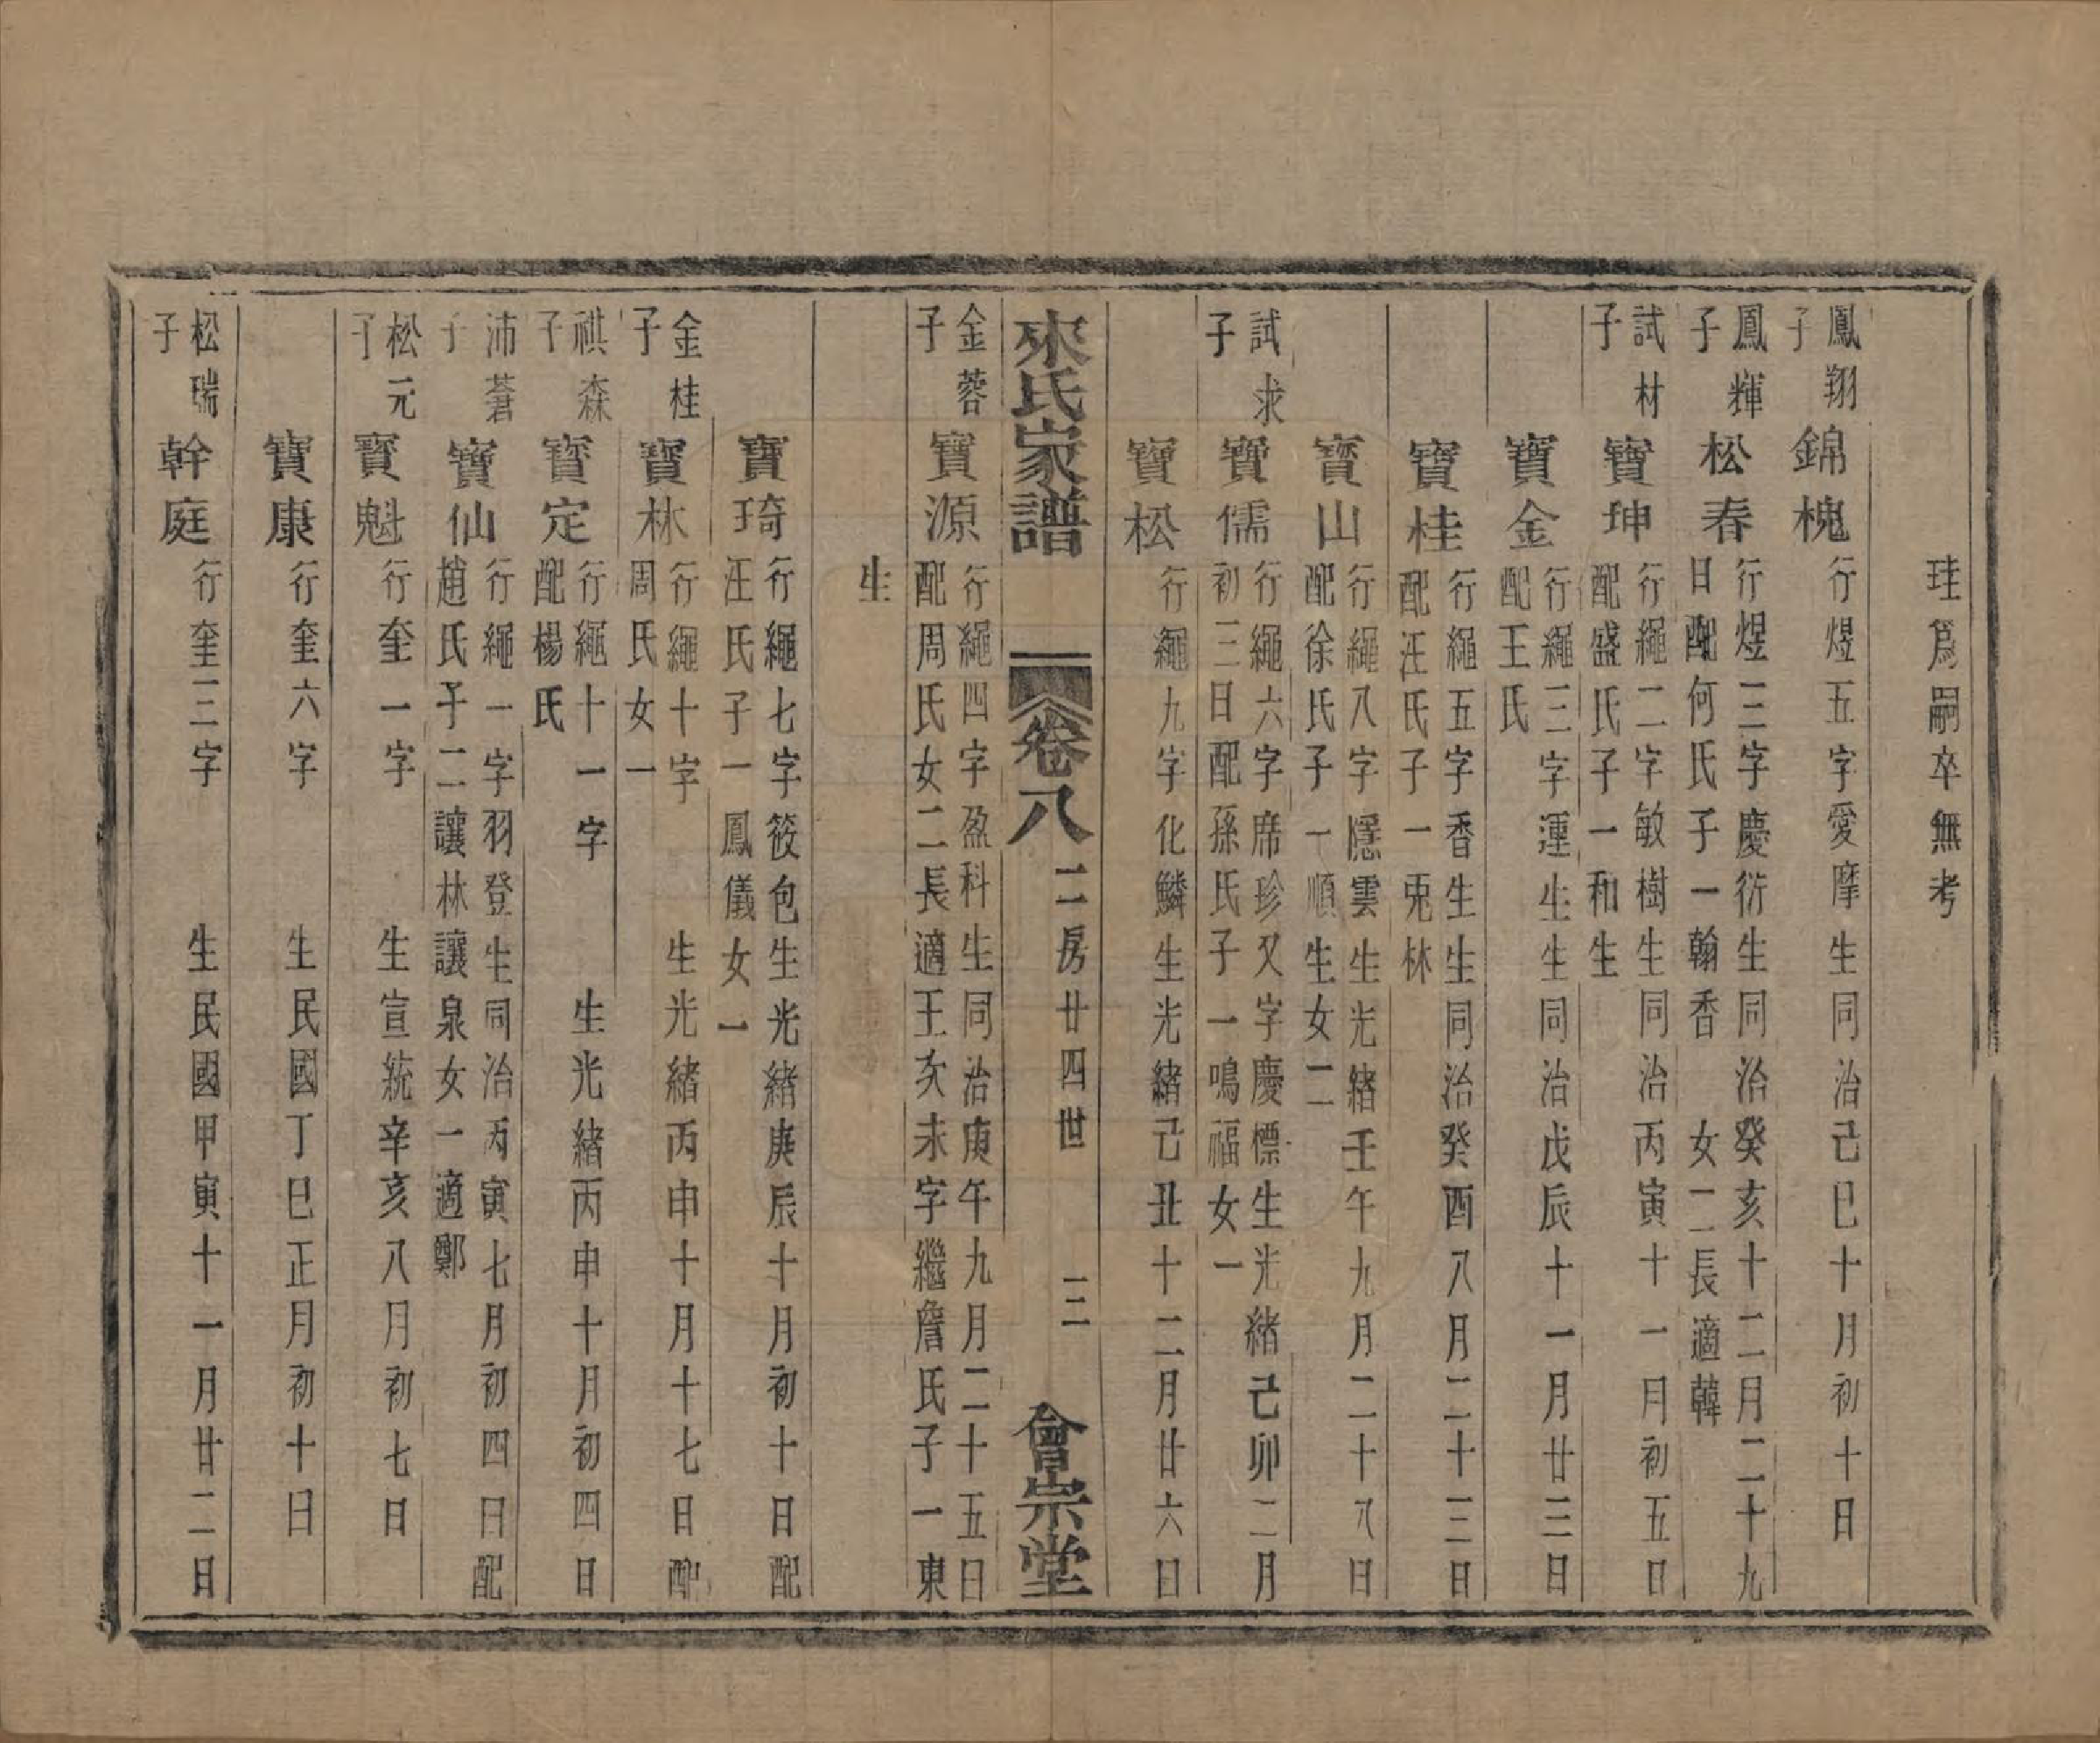 珪爲嗣卒無考
鳳翔子
錦槐
行煜五字愛摩生同治己巳十月初十日
鳳輝子
松春
行煜三字慶衍生同治癸亥十二月二十九
日配何氏子一翰香 女二長適韓
試材子
寶珅
行繩二字敏樹生同治丙寅十一月初五日
配盛氏子一和生
寶金
行繩三字運生生同治戊辰十一月廿三日
配王氏
寶桂
行繩五字香生生同治癸酉八月二十三日
配汪氏子一兎林
寶山
行繩八字隱雲生光緒壬午九月二十八日
配徐氏子一順生女二
試求子
寶儒
行繩六字席珍又字慶標生光緒己卯二月
初三日配孫氏子一鳴福女一
寶松
行繩九字化鱗生光緒己丑十二月廿六日
來氏家譜 卷八 二房廿四世 三 會宗堂
金蓉子
寶源
行繩四字盈科生同治庚午九月二十五日
配周氏女二長適王次未字繼詹氏子一東
生
寶琦
行繩七字筱包生光緒庚辰十月初十日配
汪氏子一鳳儀女一
金桂子
寶林
行繩十字 生光緒丙申十月十七日配
周氏女一
祺森子
寶定
行繩十一字 生光緒丙申十月初四日
配楊氏
沛蒼子
寶仙
行繩一字羽登生同治丙寅七月初四日配
趙氏子二讓林讓泉女一適鄭
松元子
寶魁
行奎一字 生宣統辛亥八月初七日
寶康
行奎六字 生民國丁巳正月初十日
松瑞子
幹庭
行奎三字 生民國甲寅十一月廿二日